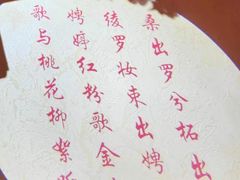 桑出罗兮拓出
绫罗妆束出娉
娉婷红粉歌金
歌与桃花柳絮